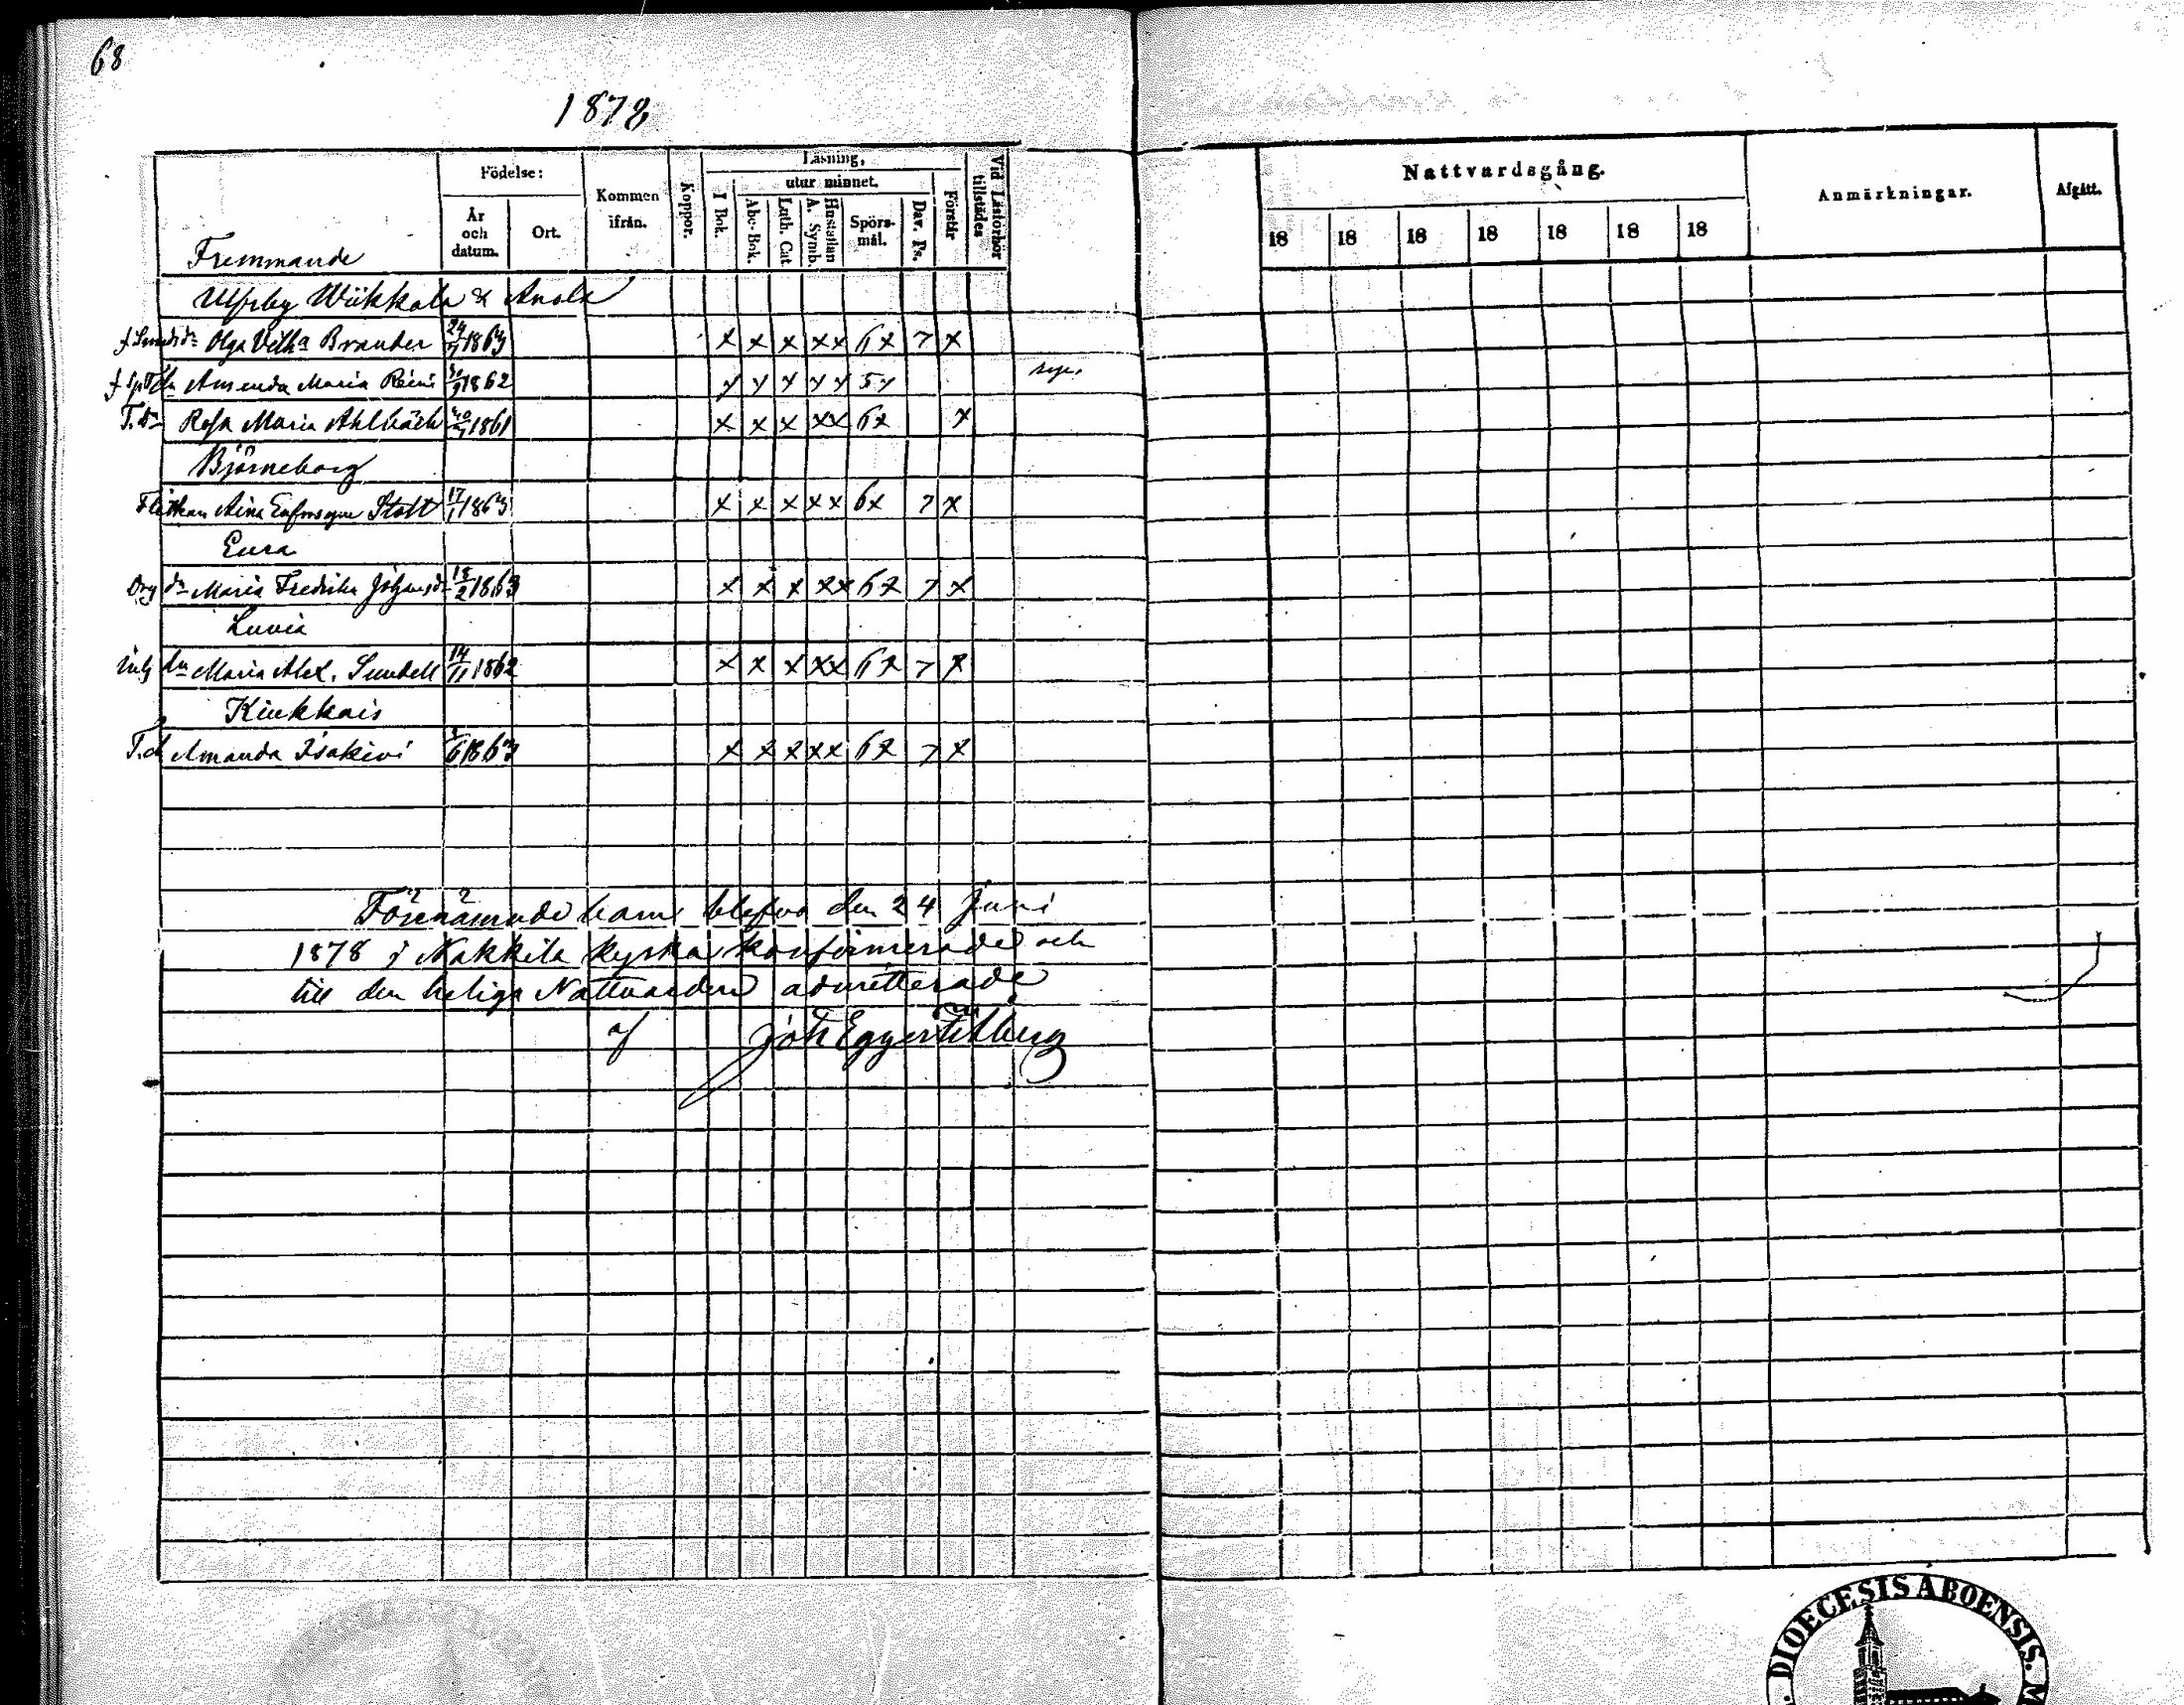 68
1878
Fremmande
Födelse:
År och datum.
Ort.
Kommen ifrån.
Koppor.
Läsning,
utur minnet.
I Bok.
Abc-Bok.
Luth. Cat.
Hustaflan A. Symb.
Spörs-mål.
Dav. Ps.
Förstår
Vid Läsförhör tillstädes
Nattvardsgång.
18 18 18 18 18 18 18
Anmärkningar.
Afgått.
Ulfsby Wiikkala & Anola
Olga Vilha Brander 24/7 1863 x x x x x 6x 7 x
Amanda Maria 1862 y y y y y 5y
T. dr Rosa Maria Ahlbäck 1861 x x x x x 6x x
Björneborg
Flickan Aina 17/1 1863 x x x x x 6x 7 x
Eura
dr Maria Fredrika Johansd 18/2 1863 x x x x x 6x 7 x
Luvia
Inh dr Maria Alex. Sundell 14/11 1862 x x x x x 6x 7 x
Kiukkais
T. d Amanda Isakivi 1863 x x x x x 6x 7 x
Förenämnde barn blefvo den 24 Juni
1878 i Nakkila kyrka konfirmerade och
till den heliga Nattvarden admitterade
af Joh Eggert
DIOECESIS ABOENSIS.